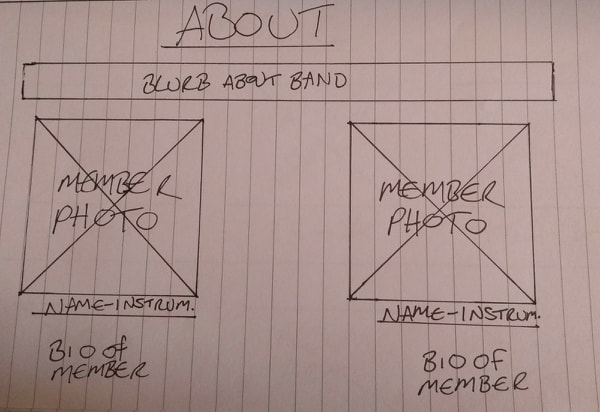 ABOUT
BLURB ABOUT BAND
MEMBER
PHOTO
NAME-INSTRUM.
BIO OF
MEMBER
MEMBER
PHOTO
NAME-INSTRUM.
BIO OF
MEMBER